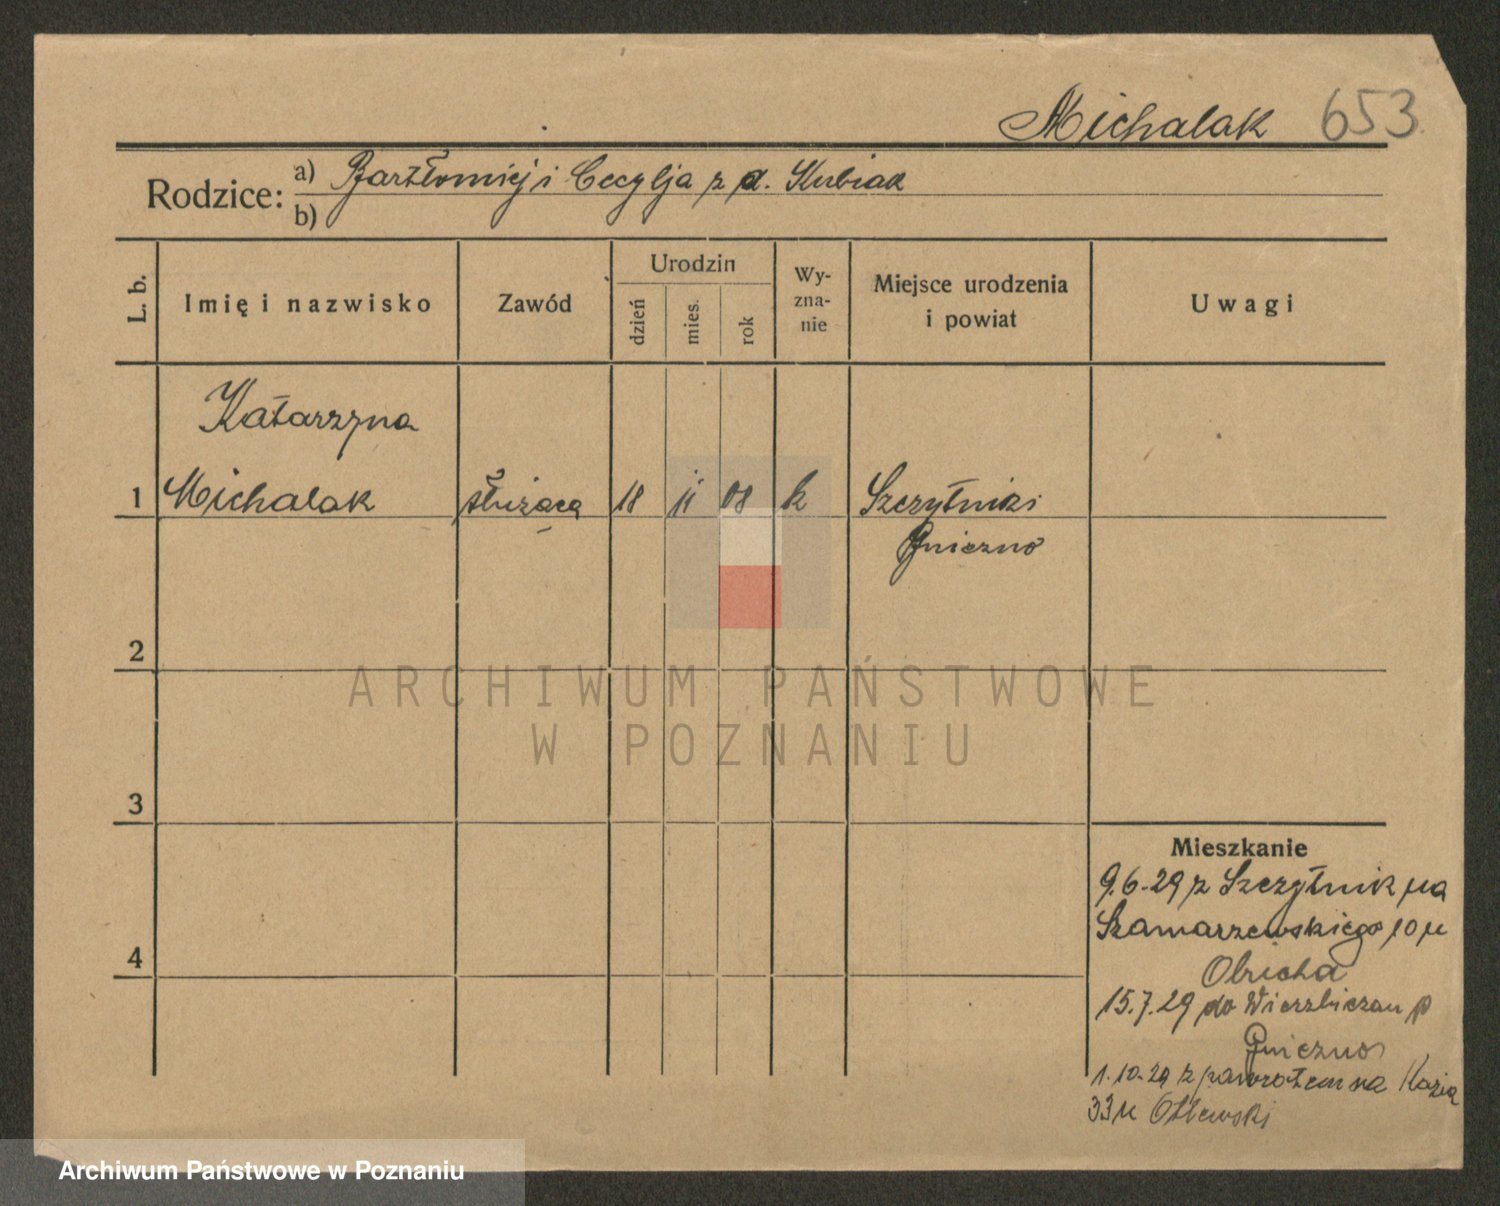 Michalak 653
Rodzice: a) Bartłomiej i Cecylja z d. Kubiak
b)
L. b. Imię i nazwisko Zawód Urodzin dzień mies. rok Wy-zna-nie Miejsce urodzenia i powiat Uwagi
Katarzyna
1 Michalak służąca 18 11 08 k Szczytniki
Gniezno
2
3
4
Mieszkanie
9.6.29 z Szczytnik na
Szamarzewskiego 10 u
Olricha
15.7.29 do Wierzbiczan p
Gniezno
1.10.29 z powrotem na
33 u
ARCHIWUM PAŃSTWOWE
W POZNANIU
Archiwum Państwowe w Poznaniu